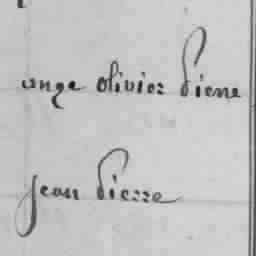 ange olivier piene
jean pierre